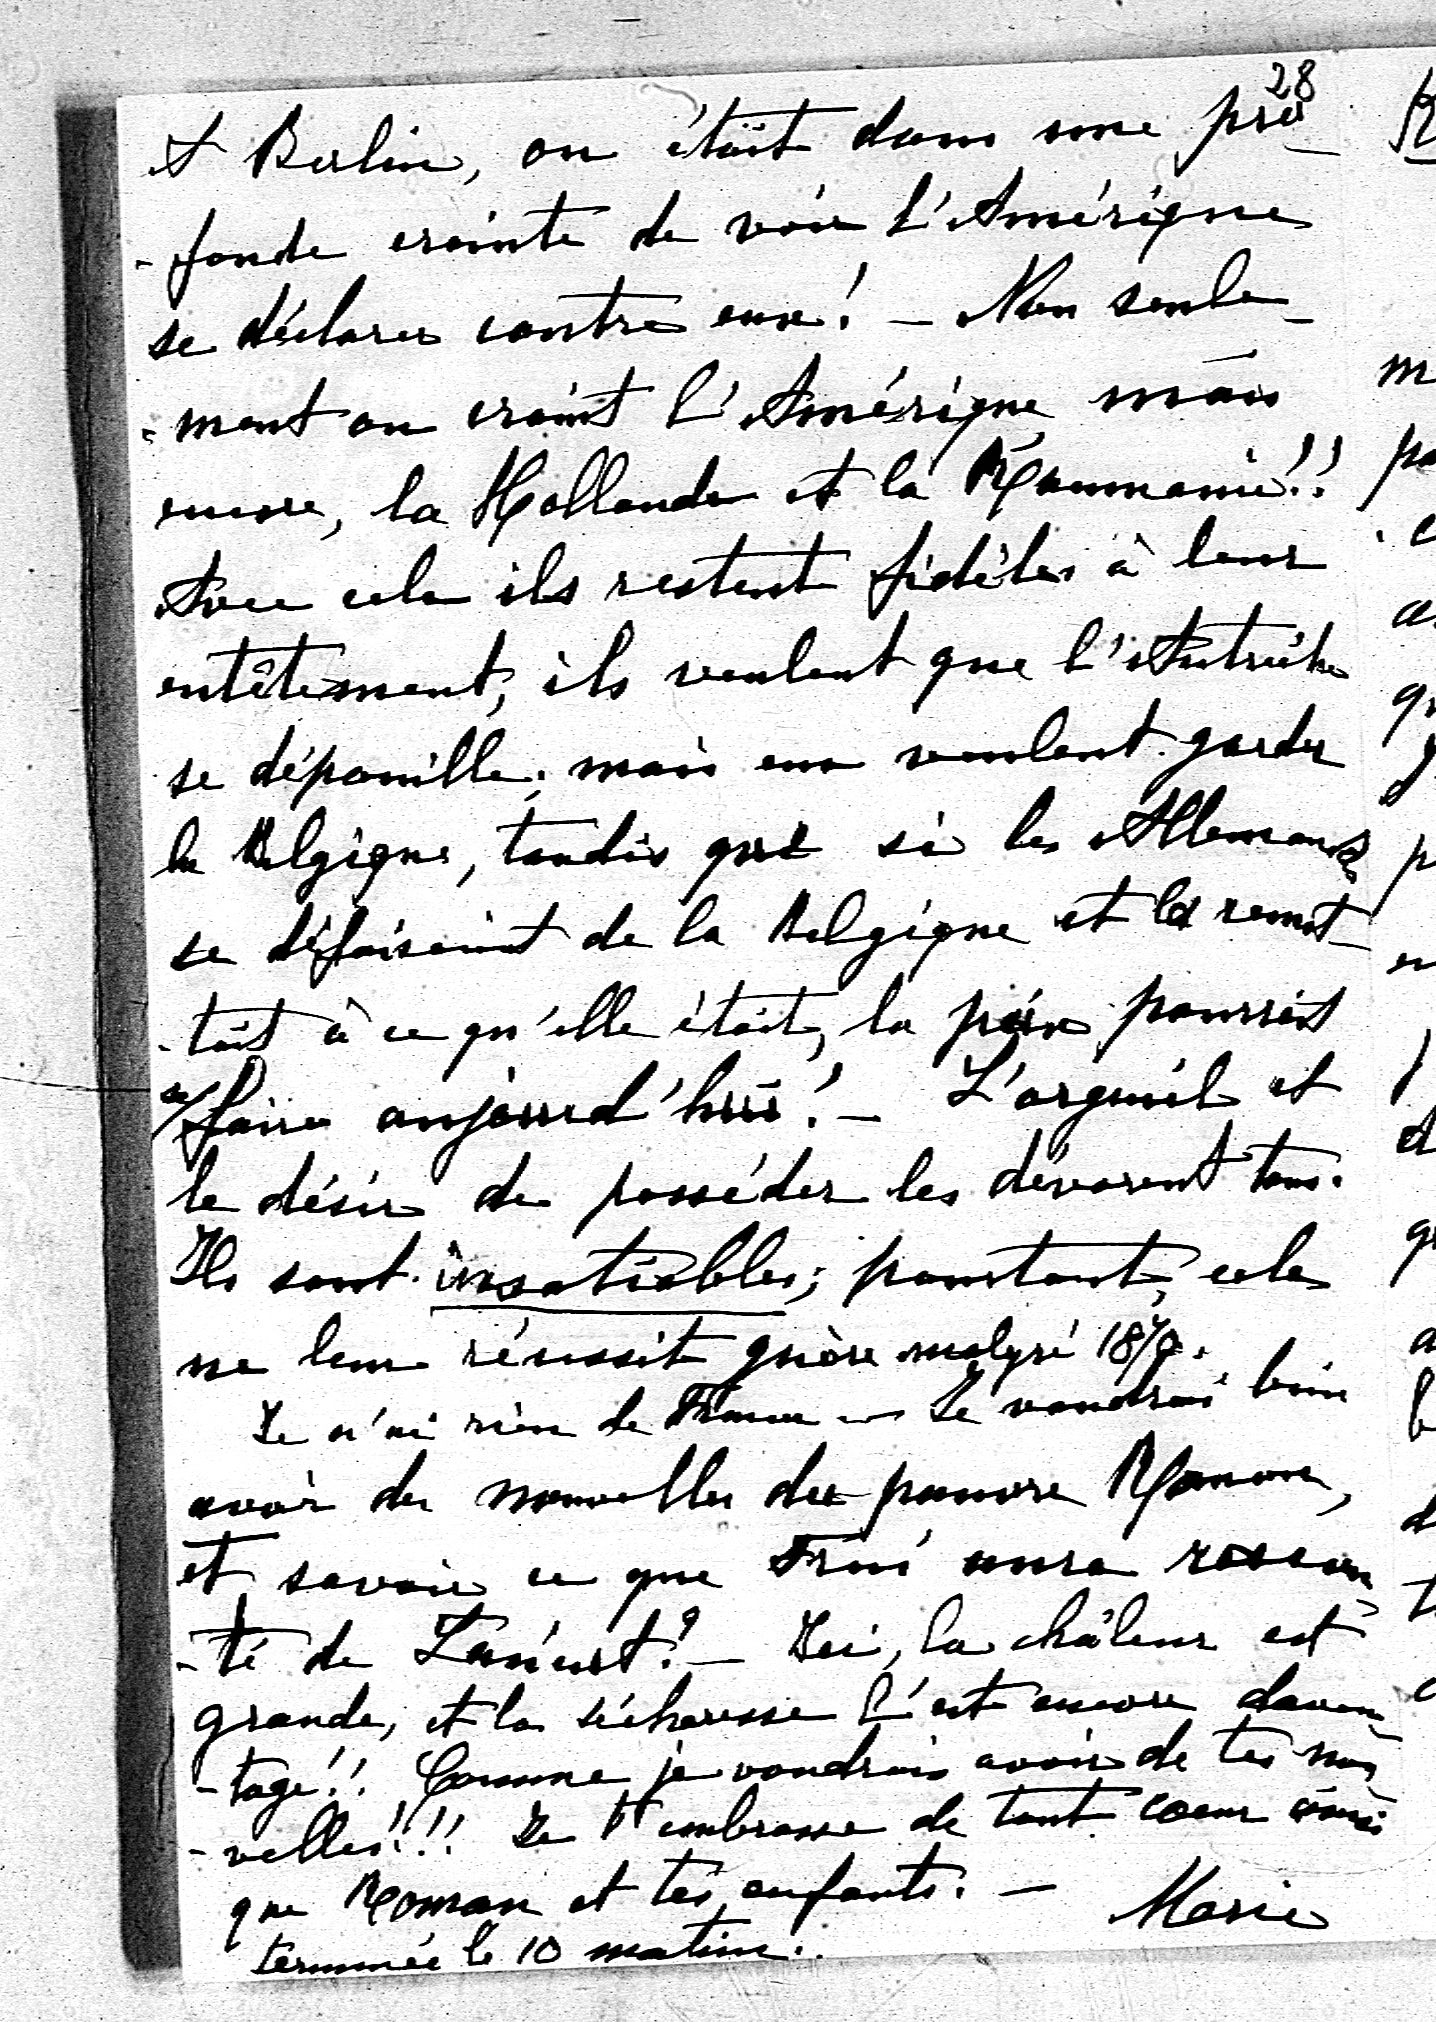 28
A Berlin, on était dans une pro-
-fonde crainte de voir l'Amérique
se déclarer contre eux! - Non seule-
-ment on craint l'Amérique mais
encore, la Hollande et la Roumanie!!
Avec cela ils restent fidèles à leur
entêtement, ils veulent que l'Autriche
se dépouille, mais eux veulent garder
la Belgique, tandis que si les Allemands
se défaisaient de la Belgique et la remet-
-tait à ce qu'elle était, la paix pourrait
se/faire aujourd'hui! - L'orgueil et
le désir de posséder les dévorent tous.
Ils sont insatiables; pourtant, cela
ne leur réussit guère malgré 1870.
Je n'ai rien de France - Je voudrais bien
avoir des nouvelles du pauvre
et savoir ce que aura racon-
-té de - Ici, la châleur est
grande, et la sécheresse l'est encore davan-
-tage!! Comme je voudrais avoir de tes nou-
-velles!!! Je t'embrasse de tout coeur ainsi
que Roman et tes enfants. - Marie
terminée le 10 matin..